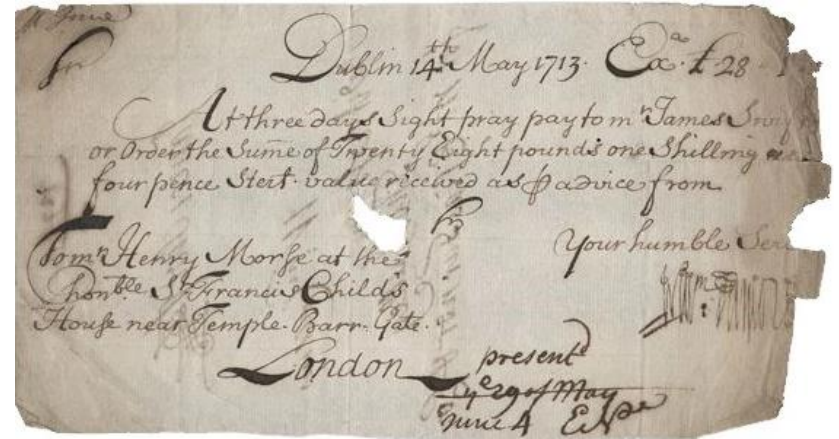 Sr
Dublin 14th May 1713. Exa. £ 28
At three days Sight pray pay to mr James
or Order the Sume of Twenty Eight pounds one Shilling
four pence Sterl. value received as P advice from
Sr
Your humble
To mr Henry Morse at the
honble Sr Francis Child's
House near Temple. Barr. Gate.
London
presentd
ye 29 of May
June 4